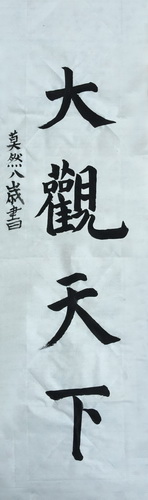 大觀天下
莫然八歲書